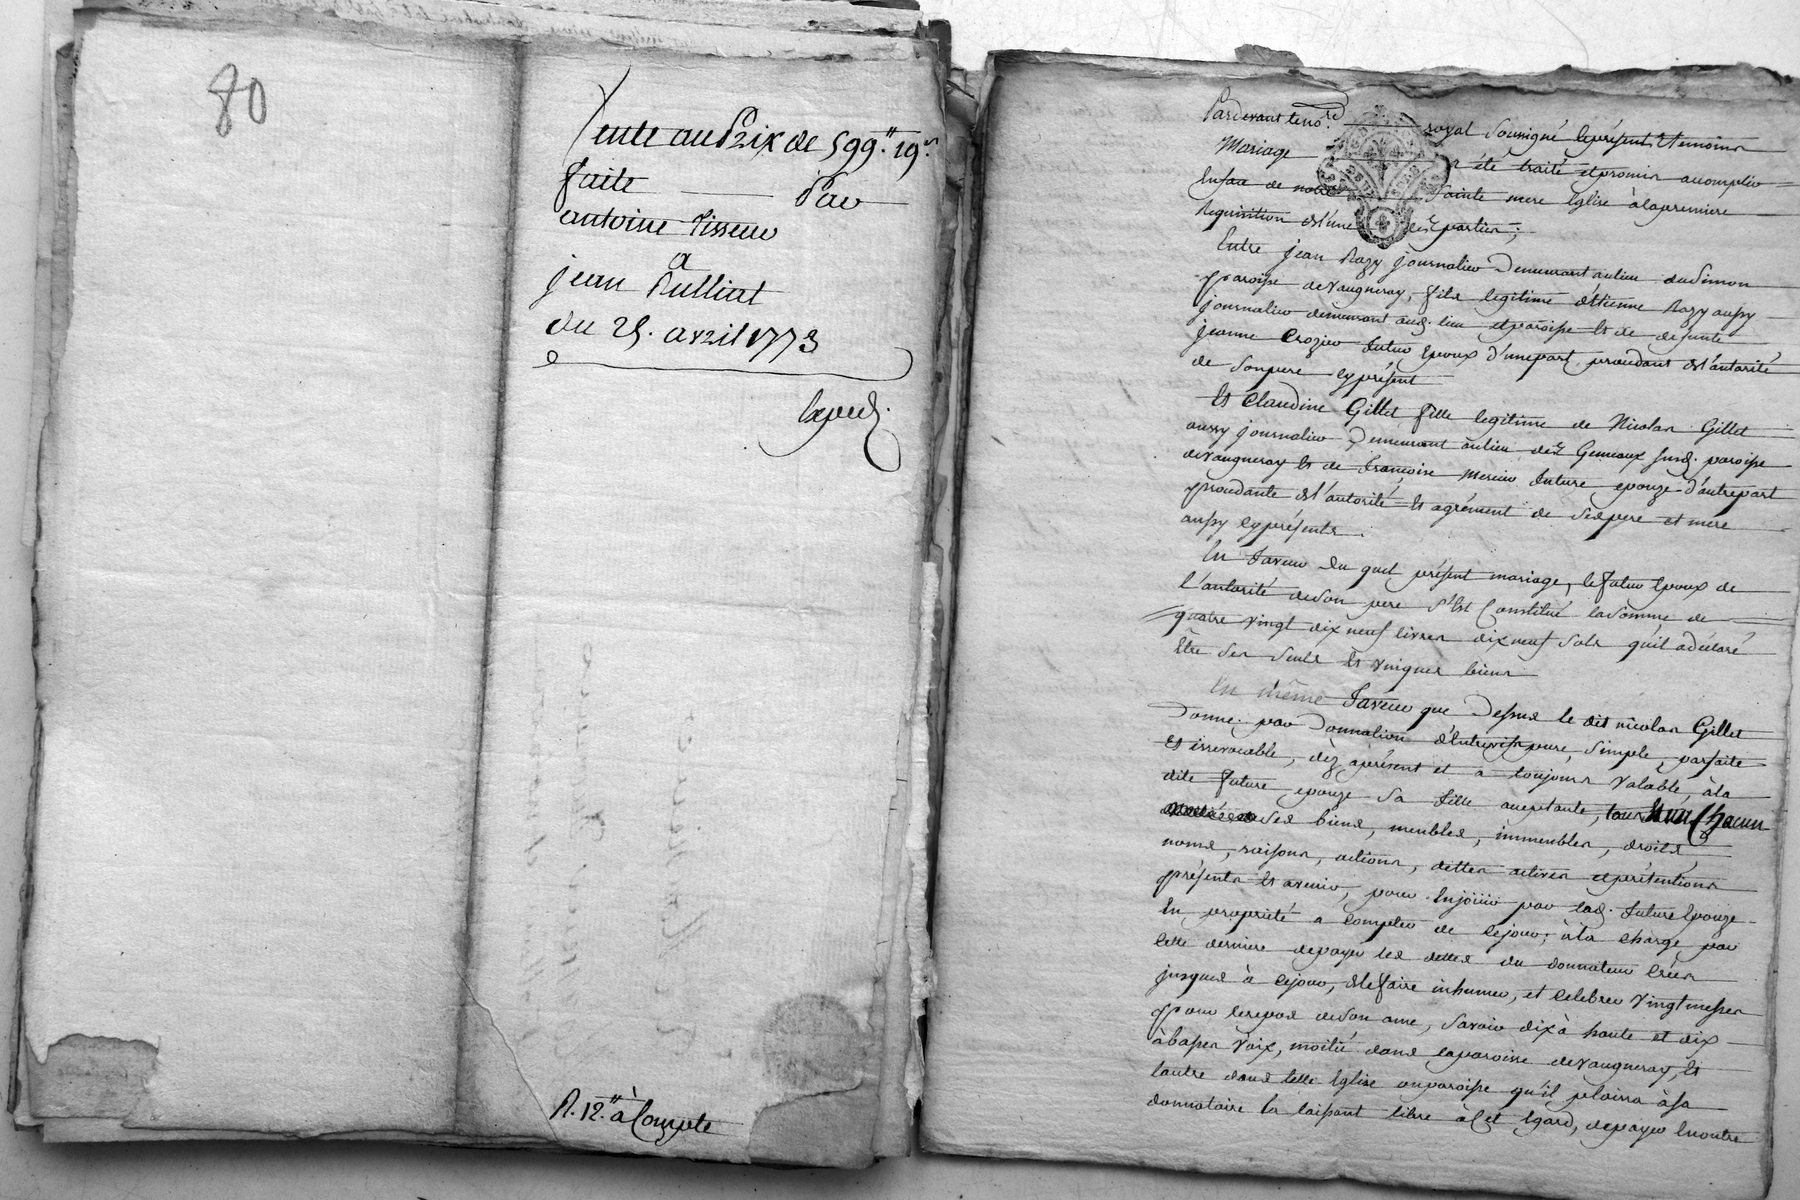 80
Vente au Prix de 599.tt 19.s
faite par
antoine Tisseur
a
jean Rulliat
du 25. avril 1773
Exped.
R. 12.tt à Compte
Pardevant le no.re royal soussigné le présent, & temoins
Mariage a été traité et promis accomplir
En face de notre Sainte mere Eglise à la premiere
Requisition de l'une des parties;
Entre jean Razy journalier Demeurant au lieu du Simon
paroisse de vaugneray, fils legitime d'Etienne Razy aussy
journalier demeurant aud. lieu et paroisse Et de defunte
jeanne Crozier futur Epoux d'une part, procedant de l'autorité
de son pere cy présent
Et Claudine Gillet fille legitime de Nicolas Gillet
aussy journalier Demeurant au lieu des Gemeaux susd. paroisse
de vaugneray Et de francoise mercier future epouze d'autre part
procedante de l'autorité Et agrément de ses pere et mere
aussy cy présents.
En faveur du quel présent mariage, le futur Epoux de
l'autorité de son pere s'Est Constitué la somme de
quatre vingt dix neuf livres dix neuf sols qu'il a déclaré
Etre ses seuls Et uniques biens
En même faveur que Dessus le dit nicolas Gillet
Donne par Donnation d'Entrevifs pure, simple, parfaite
Et irrevocable, dèz àprésent et a toujours valable, à la
dite future epouze sa fille acceptante, tous Et un Chacun
ses biens, meubles, immeubles, droits
noms, raisons, actions, dettes actives et prétentions
présents Et avenir, pour En jöuir par lad. future Epouze
En propriété a compter de ce jour; à la charge par
cette derniere de payer les dettes du donnateur Créés
jusques à ce jour, de le faire inhumer, et celebrer vingt messes
pour le repos de son ame, savoir dix à haute et dix
à basses voix, moitié dans la paroisse de vaugneray, Et
l'autre dans telle Eglise ou paroisse qu'il plaira à sa
donnataire la laissant libre à Cet Egard, de payer En outre